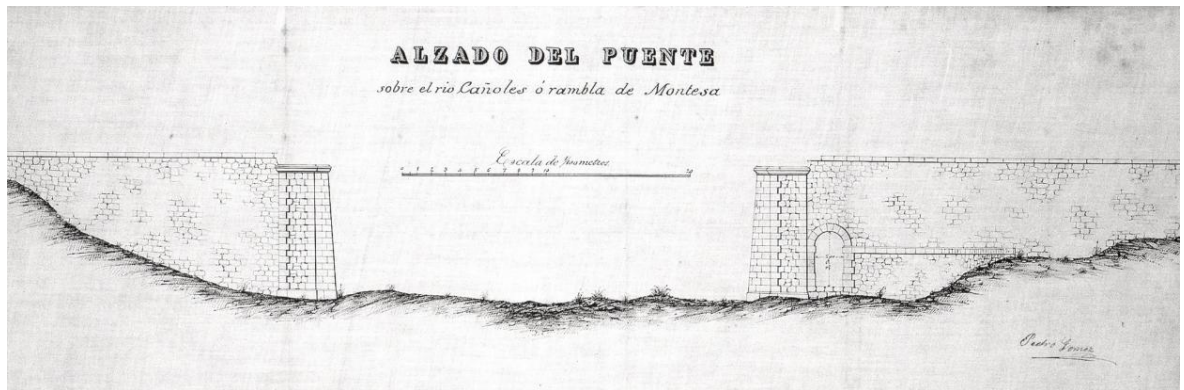 ALZADO DEL PUENTE
sobre el rio Cañoles ó rambla de Montesa
Escala de metros
0 1 2 3 4 5 6 7 8 9 10 20
Pedro Gomez